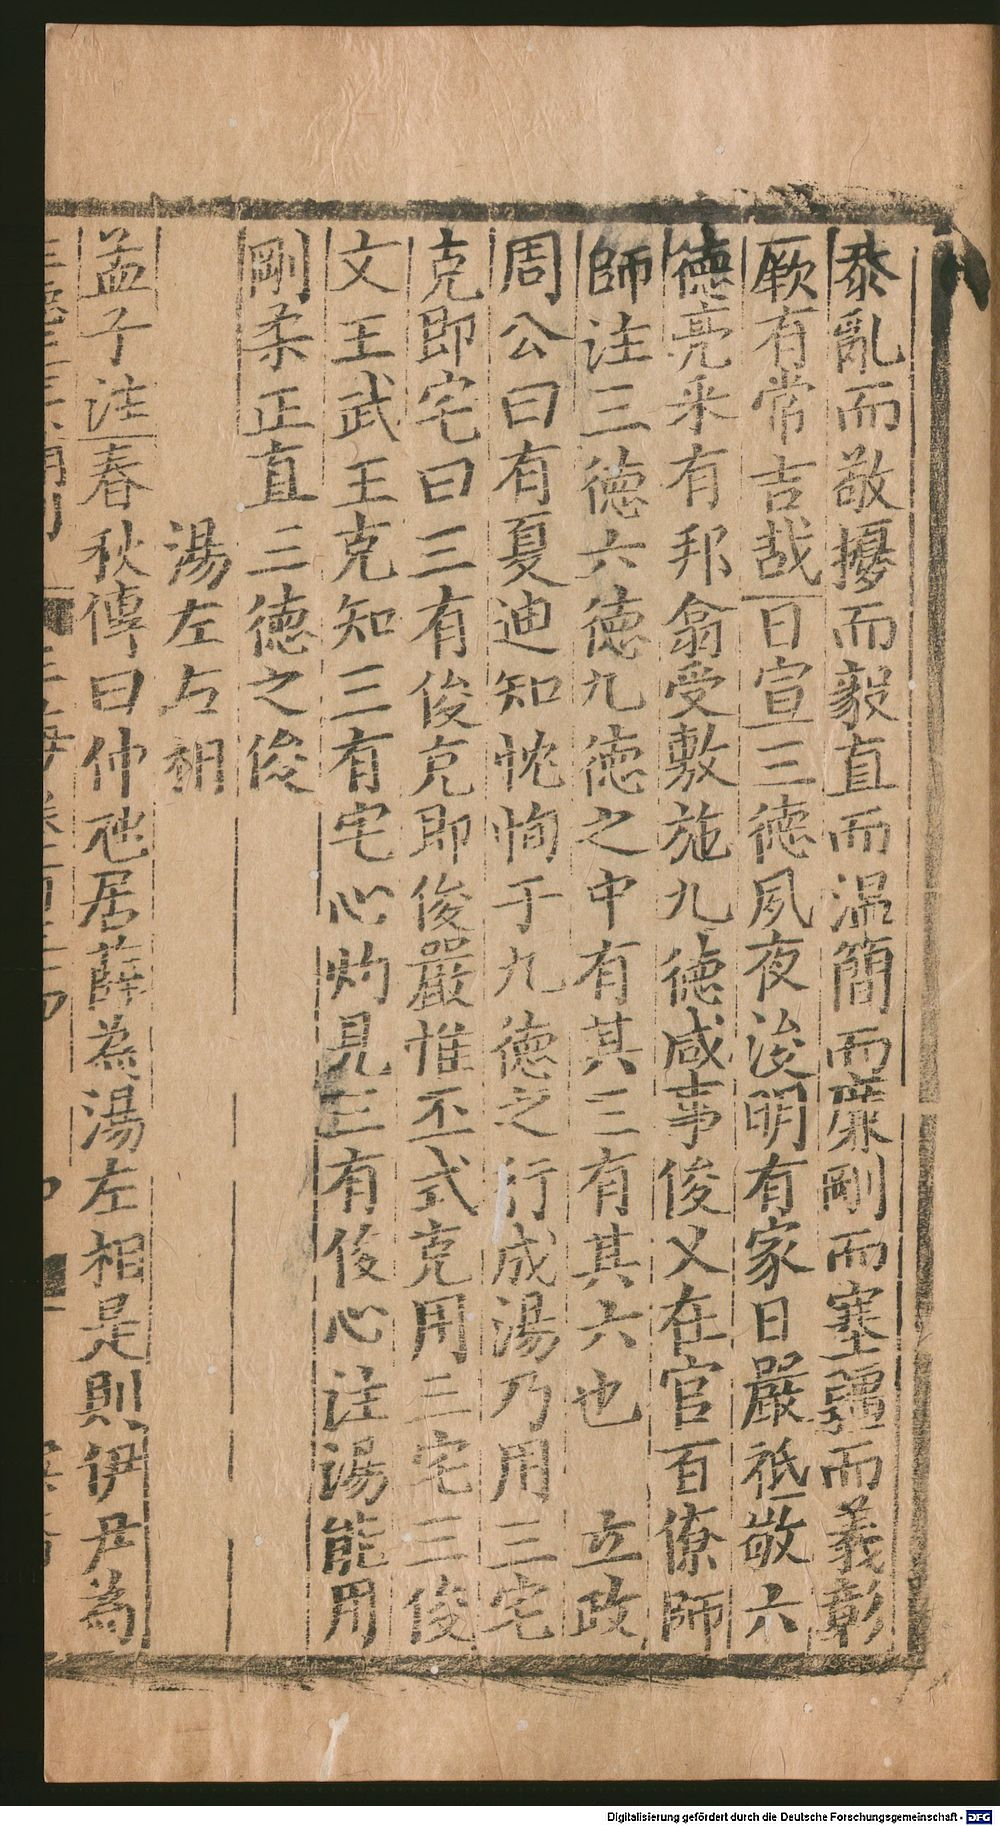 恭亂而敬擾而毅直而温簡而廉剛而塞彊而義彰
厥有常吉哉日宣三德夙夜浚明有家日嚴祗敬六
德亮采有邦翕受敷施九德咸事俊乂在官百僚師
師注三德六德九德之中有其三有其六也　立政
周公曰有夏迪知忱恂于九德之行成湯乃用三宅
克即宅曰三有俊克即俊嚴惟丕式克用三宅三俊
文王武王克知三有宅心灼見三有俊心注湯能用
剛柔正直三德之俊
湯左右相
孟子注春秋傳曰仲虺居薛為湯左相是則伊尹為
Digitalisierung gefördert durch die Deutsche Forschungsgemeinschaft - DFG